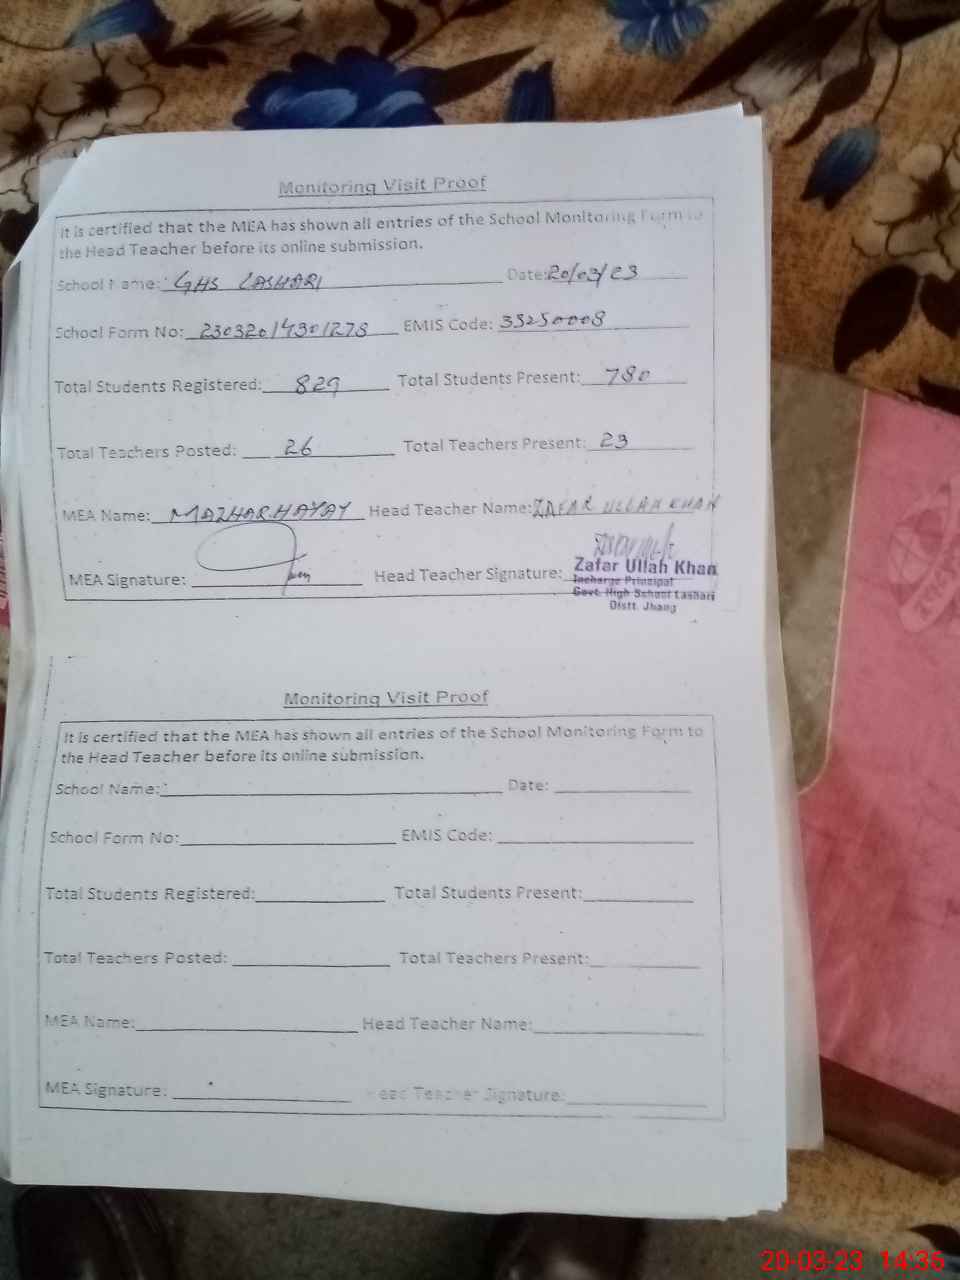 Monitoring Visit Proof
It is certified that the MEA has shown all entries of the School Monitoring Form to
the Head Teacher before its online submission.
School Name: GHS LASHARI Date: 20/03/23
School Form No: 23032014301278 EMIS Code: 33250008
Total Students Registered: 829 Total Students Present: 780
Total Teachers Posted: 26 Total Teachers Present: 23
MEA Name: MAZHAR HAYAY Head Teacher Name: ZAFAR ULLAH KHAN
MEA Signature: Head Teacher Signature:
Zafar Ullah Khan
Incharge Principal
Govt. High School Lashari
Distt. Jhang
Monitoring Visit Proof
It is certified that the MEA has shown all entries of the School Monitoring Form to
the Head Teacher before its online submission.
School Name: Date:
School Form No: EMIS Code:
Total Students Registered: Total Students Present:
Total Teachers Posted: Total Teachers Present:
MEA Name: Head Teacher Name:
MEA Signature: Head Teacher Signature:
20-03-23 14:36